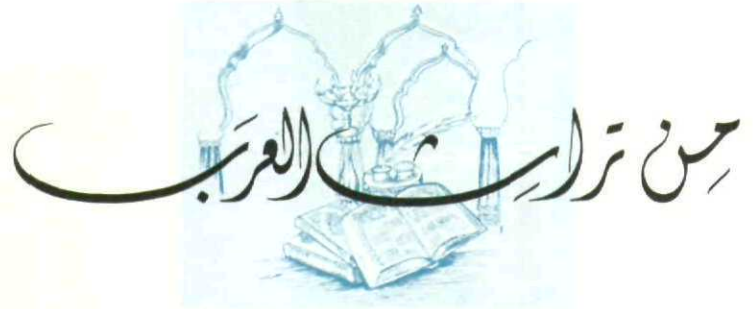 من تراثِ العرَب